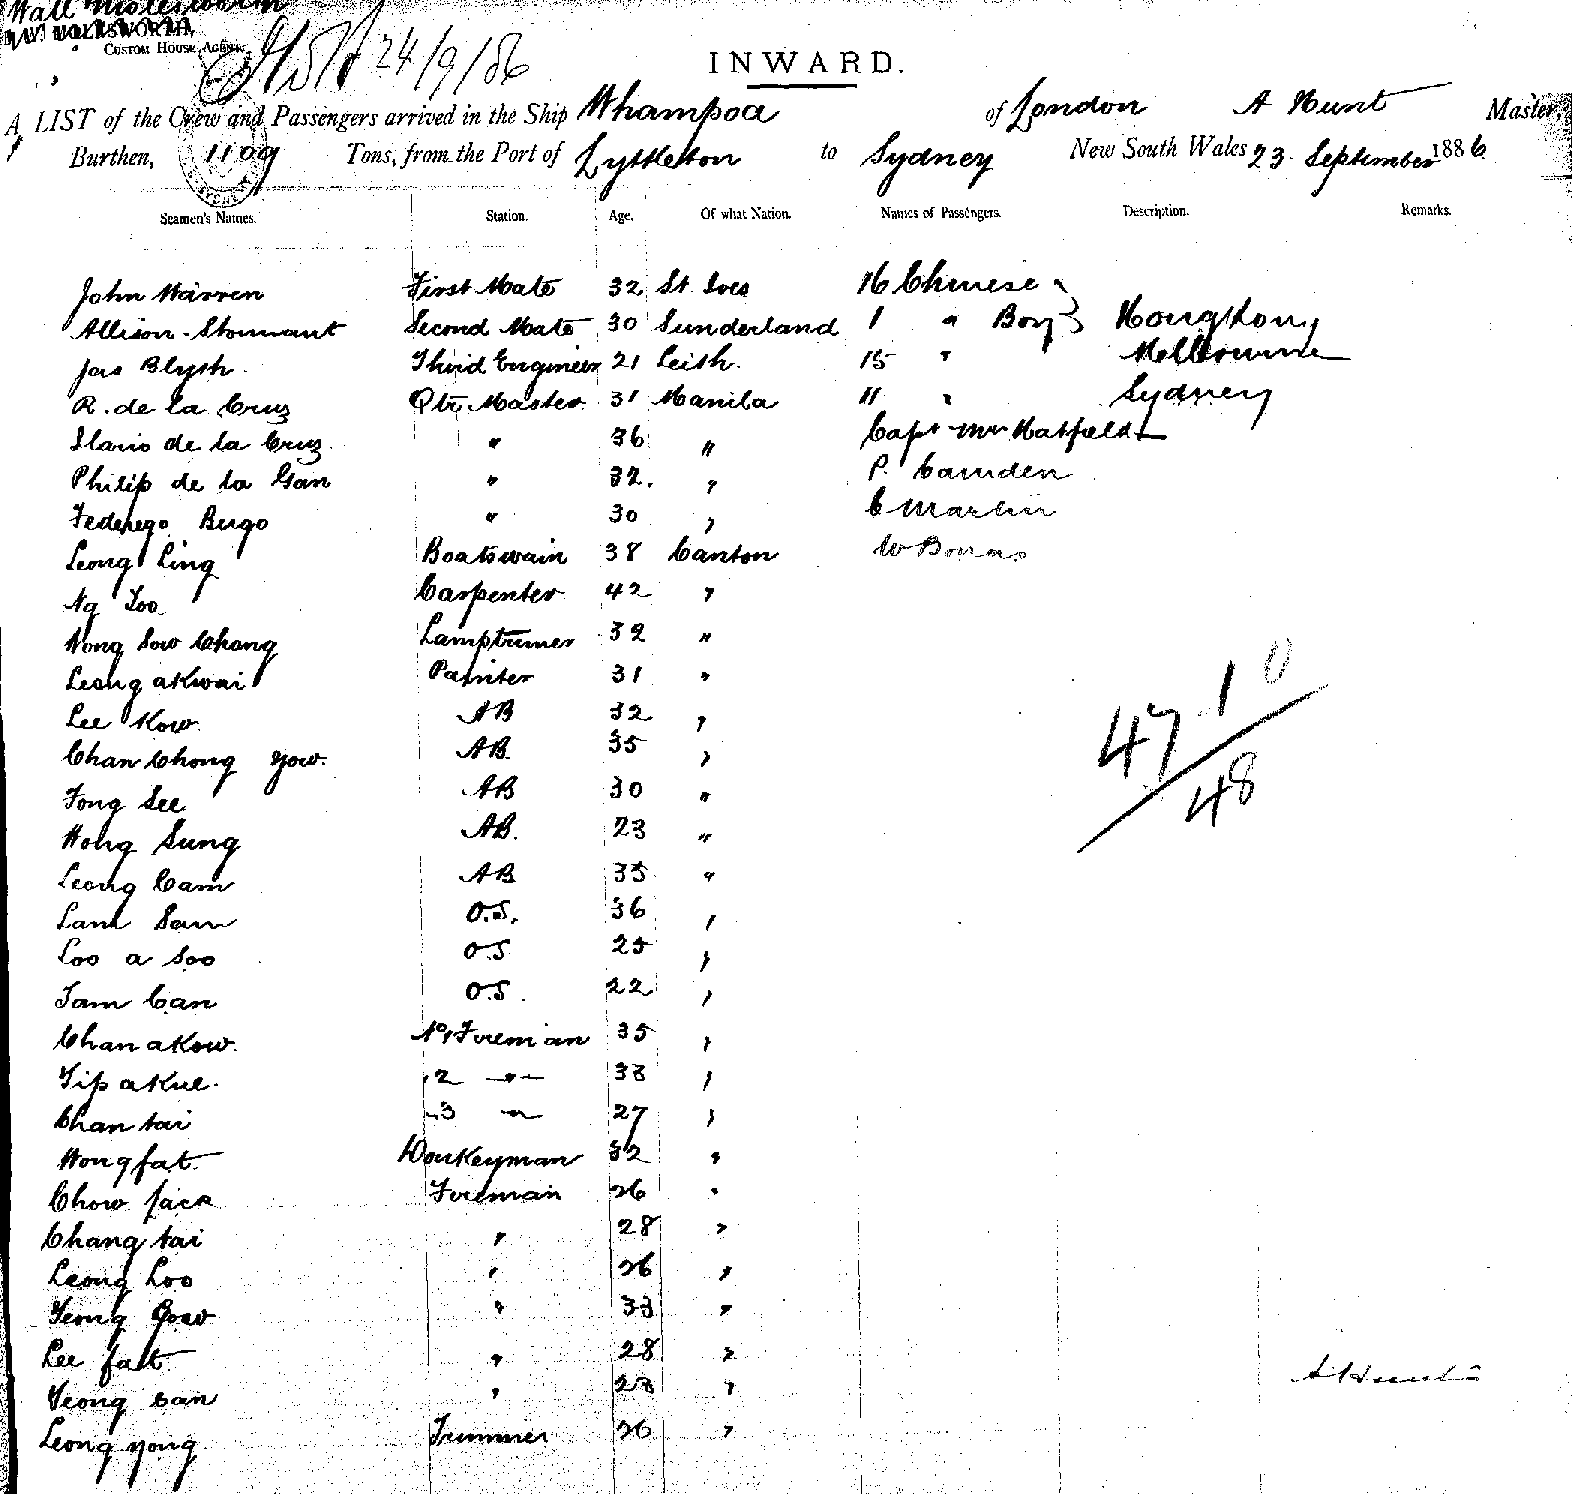 Wall Molesworth
W. MOLESWORTH,
CUSTOM HOUSE AGENT
24/9/86
INWARD.
A LIST of the Crew and Passengers arrived in the Ship Whampoa of London A Hunt Master,
Burthen, 1109 Tons, from the Port of Lyttelton to Sydney New South Wales 23 September 1886
Seamen's Names. Station. Age. Of what Nation. Names of Passengers. Description. Remarks.
John Warren First Mate 32 St Ives 16 Chinese
Allison Stonnant Second Mate 30 Sunderland 1 " Boy } Hong Kong
Jas Blyth Third Engineer 21 Leith. 15 " Melbourne
R. de la Cruz Qtr Master 31 Manila 11 " Sydney
Ilario de la Cruz " 36 " Capt Mrs Hatfield
Philip de la Gan " 32. " P. Camden
Federego Bugo " 30 " C Martin
Leong Ling Boatswain 38 Canton W
Ng Loo Carpenter 42 "
Wong Sow Chang Lamptrimer 32 "
Leong akwai Painter 31 "
Lee Kow AB 32 "
Chan Chong Yow. AB. 35 "
Fong See AB 30 "
Wong Sung AB. 23 "
Leong Cam AB 35 "
Lam Sam O.S. 36 "
Loo a Soo O.S 25 "
Tam Can O.S. 22 "
Chan akow. No 1 Fireman 35 "
Yip akue. " 2 " 38 "
Chan tai " 3 " 27 "
Wong fat. Donkeyman 32 "
Chow jack Fireman 26 "
Chang tai " 28 "
Leong Loo " 26 "
Yeong Gow " 33 "
Lee fatt " 28 "
Yeong San " 28 "
Leong yong Trimmer 26 "
47 1 0
48
A Hunt